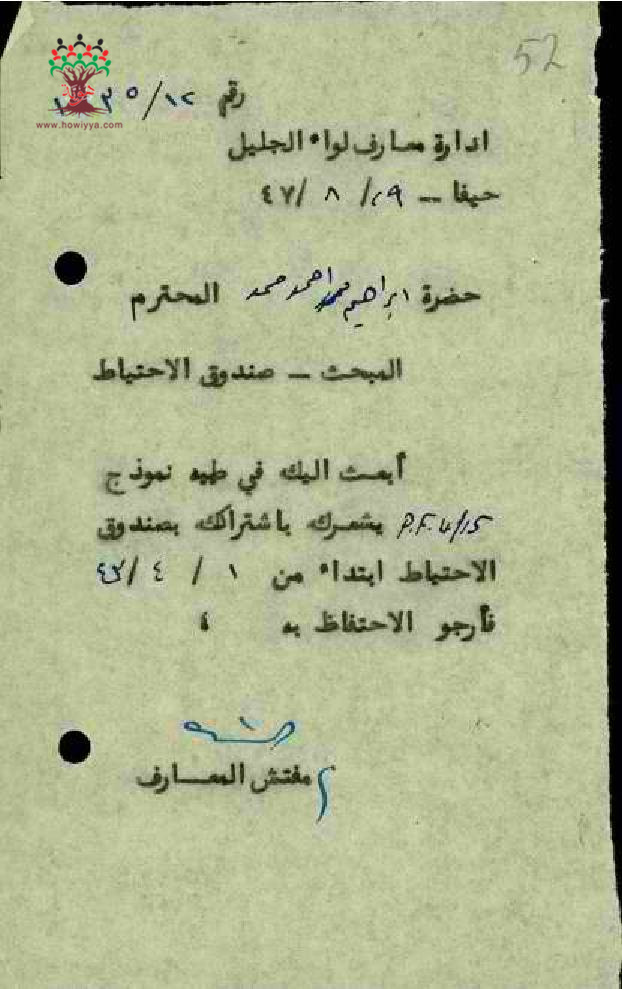 52
رقم ١٢/٣٥
www.howiyya.com
ادارة معارف لواء الجليل
حيفا – ١٩/ ٨ /٤٧
حضرة ابراهيم محمد احمد حمد المحترم
المبحث – صندوق الاحتياط
أبعث اليك في طيه نموذج
يشعرك باشتراكك بصندوق
الاحتياط ابتداء من ١ / ٤ /٤٣
فأرجو الاحتفاظ به ،
مفتش المعارف